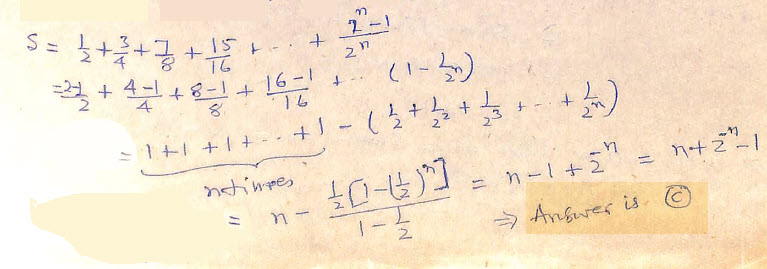 S = 1/2 + 3/4 + 7/8 + 15/16 + ... + (2^n - 1)/2^n
= (2-1)/2 + (4-1)/4 + (8-1)/8 + (16-1)/16 + ... (1 - 1/2^n)
= 1 + 1 + 1 + ... + 1 - (1/2 + 1/2^2 + 1/2^3 + ... + 1/2^n)
n times
= n - (1/2 [1 - (1/2)^n])/(1 - 1/2) = n - 1 + 2^-n = n + 2^-n - 1
⇒ Answer is (C)